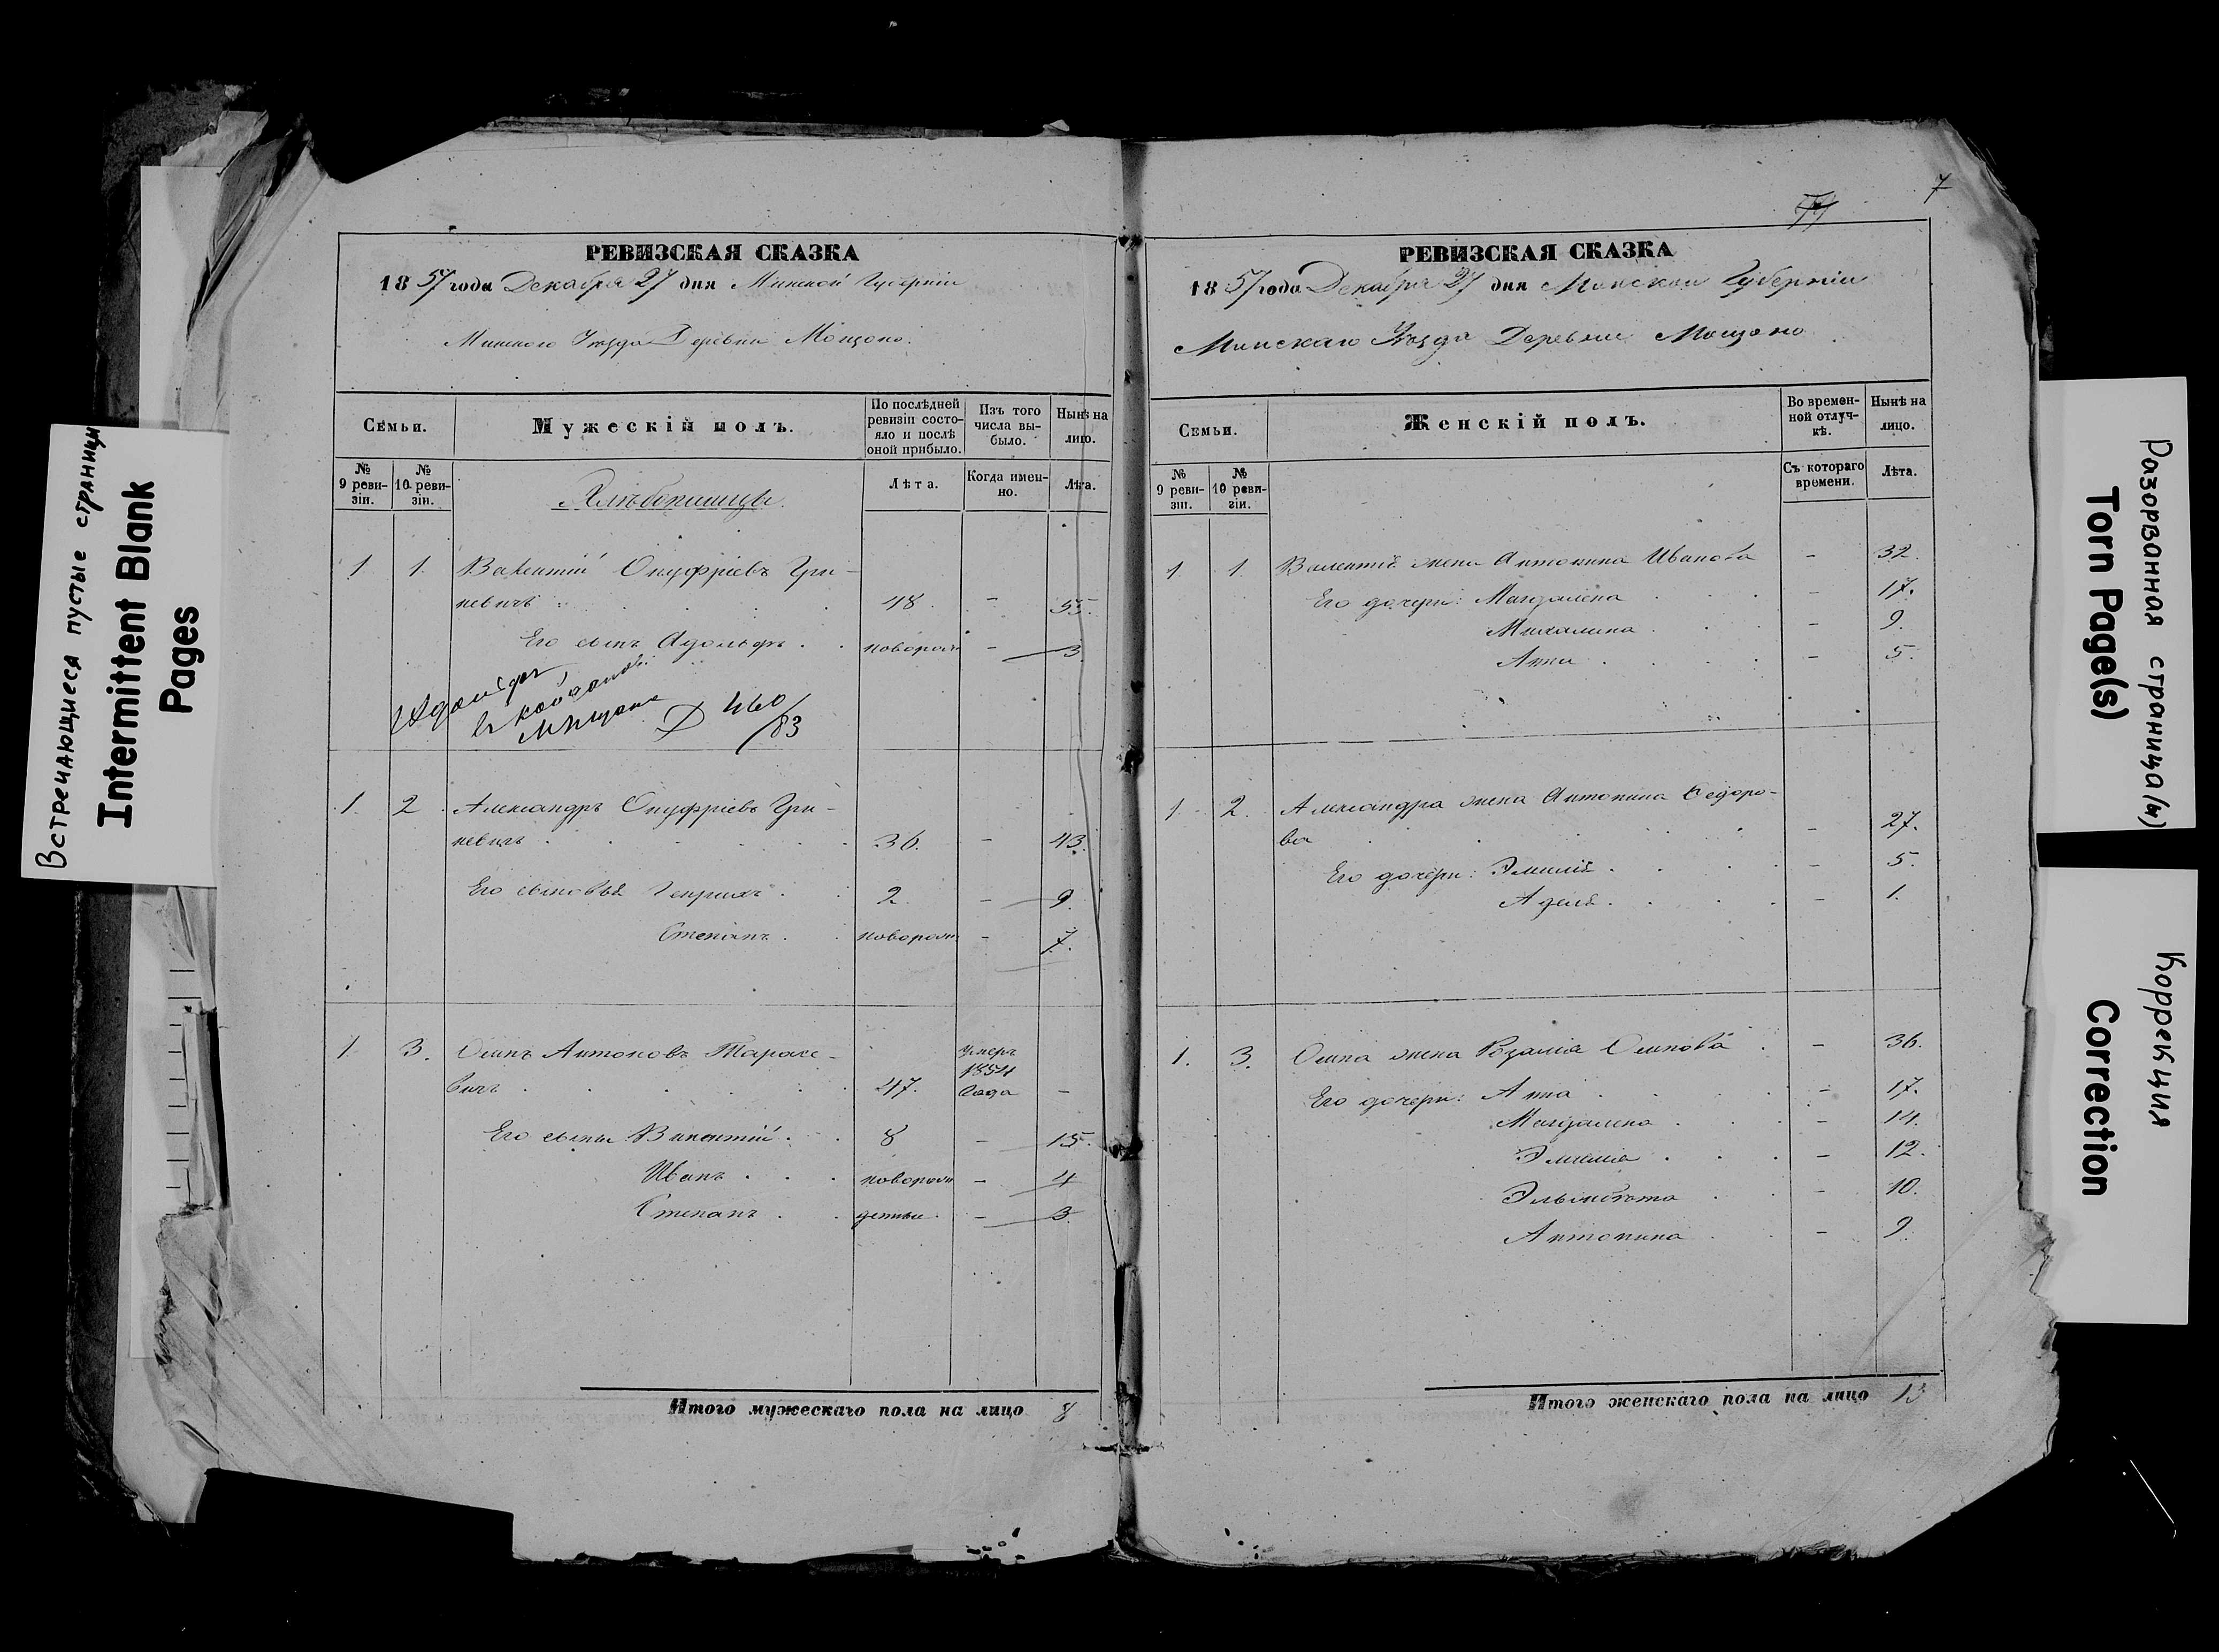 Встречающиеся пустые страницы
Intermittent Blank
Pages
РЕВИЗСКАЯ СКАЗКА
1857 года Декабря 27 дня Минской Губерніи
Минского Уезда Деревни
Семьи.
Мужескій полъ.
По послѣдней ревизіи состояло и послѣ оной прибыло.
Изъ того числа выбыло.
Нынѣ на лицо.
№ 9 ревизіи.
№ 10 ревизіи.
Лѣта.
Когда именно.
Лѣта.
1 1. Викентій Онуфріевъ Гри-
невичъ 48. - 55.
Его сынъ Адольфъ новорож - 3
Адольфъ
460/83
1. 2. Александръ Онуфріевъ Гри-
невичъ 36. - 43.
Его сыновья Генрихъ 2 - 9.
Степанъ новорож - 7.
1 3. Осипъ Антоновъ Тарасе-
вичъ 47. Умеръ 1854 года -
Его сыны Викентій 8 - 15.
Иванъ новорож - 4
Степанъ - 3.
Итого мужескаго пола на лицо 8
7
РЕВИЗСКАЯ СКАЗКА
1857 года Декабря 27 дня Минской Губерніи
Минскаго Уезда Деревни
Семьи.
Женскій полъ.
Во временной отлучкѣ.
Нынѣ на лицо.
№ 9 ревизіи.
№ 10 ревизіи.
Съ котораго времени.
Лѣта.
1 1. жена Антонина Иванова - 32.
Его дочери: Магдалена - 17.
Михалина - 9.
Анна - 5.
1 2. Александра жена Антонина Федоро-
ва - 27.
Его дочери: Эмилія - 5.
Аделя - 1.
1. 3. Осипа жена Розалія Осипова - 36.
Его дочери: Анна - 17.
Магдалена - 14.
Эмилія - 12.
Эльжбета - 10.
Антонина - 9.
Итого женскаго пола на лицо 13
Разорванная страница(ы)
Torn Page(s)
Коррекция
Correction